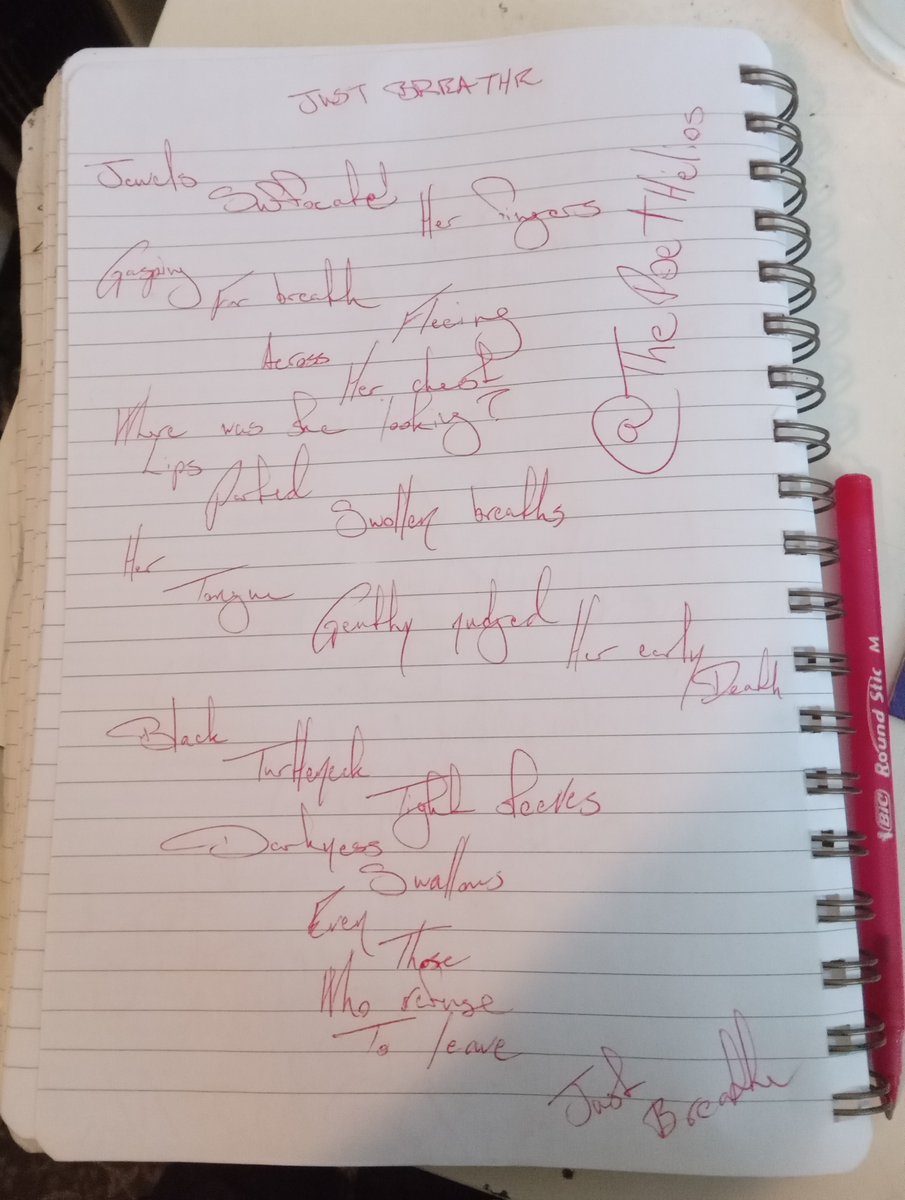 JUST BREATHE
Jewels
Suffocated
Her fingers
Gasping
For breath
Fleeing
Across
Her chest
Where was she looking?
Lips
Parted
Swollen breaths
Her
Tongue
Gently judged
Her early
Death
Black
Turtleneck
Tight sleeves
Darkness
Swallows
Even
Those
Who refuse
To leave
Just
Breathe
@ThePoetHelios
BIC Round Stic M